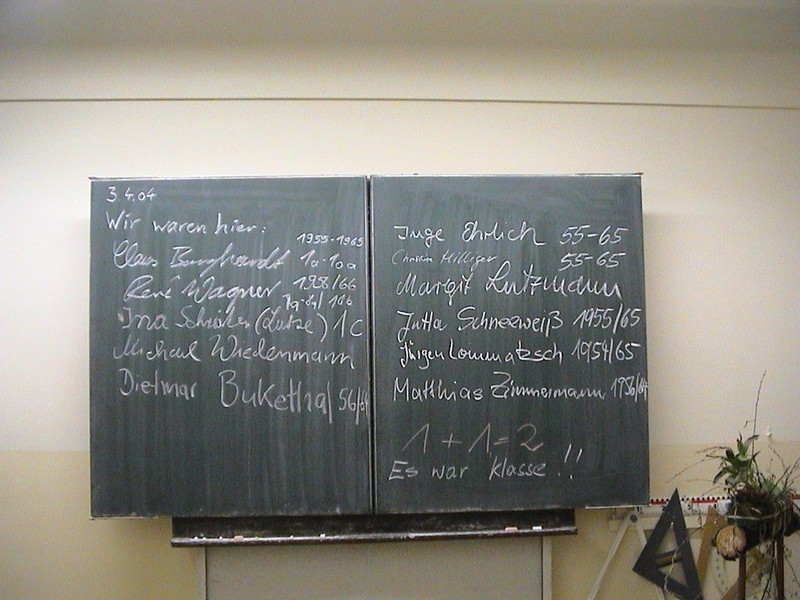 3.4.04
Wir waren hier:
1955-1965
Claus Burghardt 1a-10a
René Wagner 1958/66
Ina (Lutze) 1c
Michael Wiedenmann
Dietmar Bukethal 56/64
Inge Ehrlich 55-65
Christin Milliger 55-65
Margit Lutzmann
Jutta Schneeweiß 1955/65
Jürgen Lommatzsch 1954/65
Matthias Zimmermann 1956/64
1+1=2
Es war klasse!!